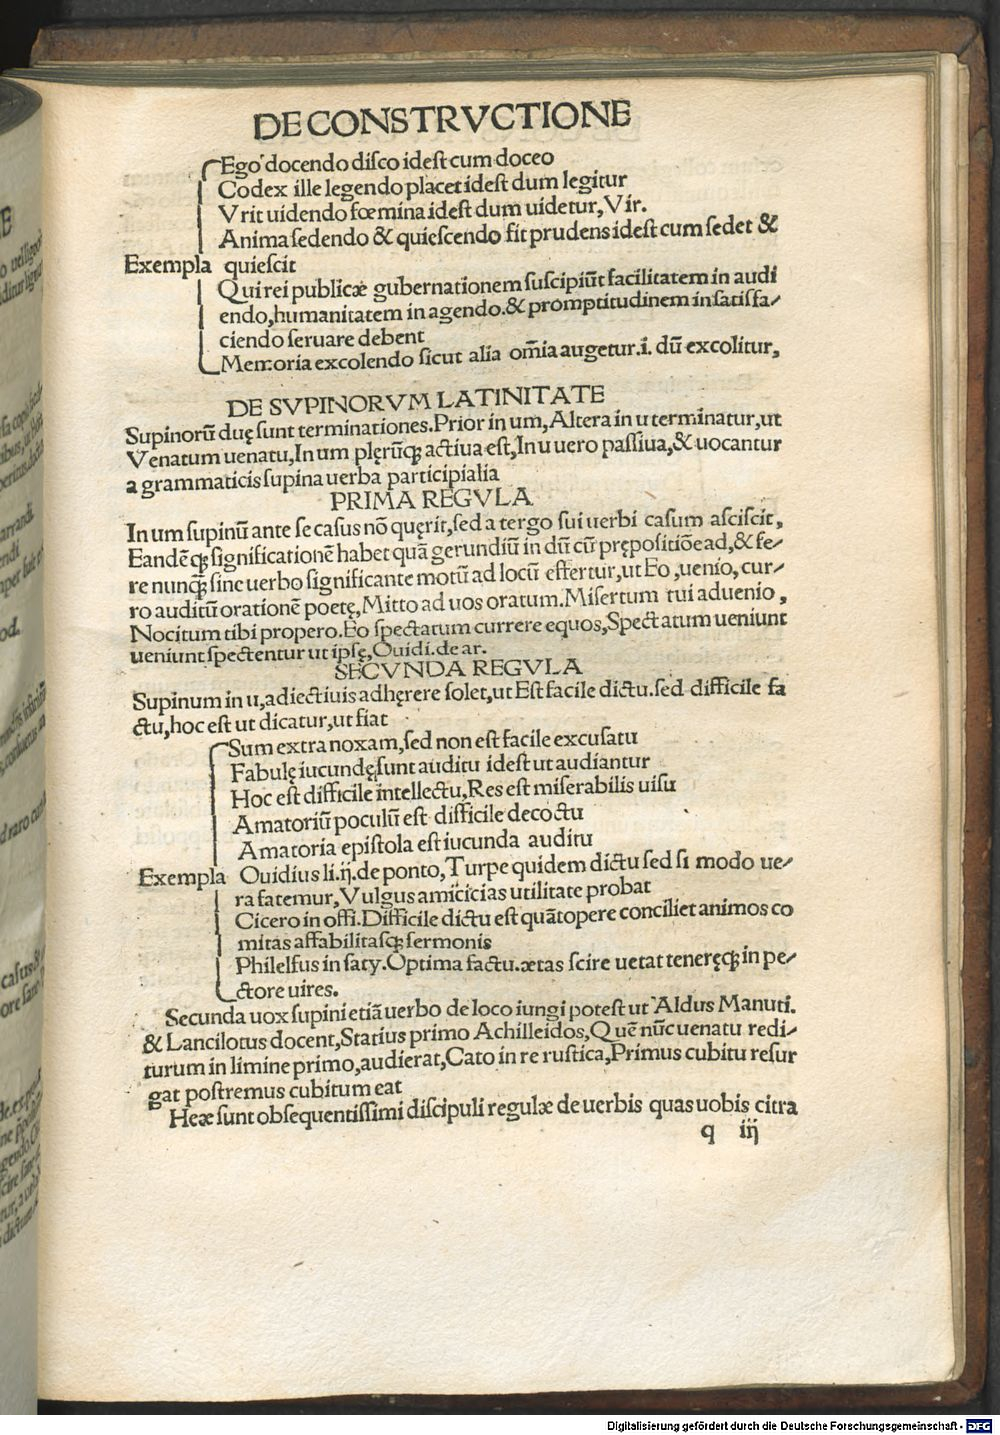 DE CONSTRVCTIONE
Ego docendo disco idest cum doceo
Codex ille legendo placet idest dum legitur
Vrit uidendo fœmina idest dum uidetur, Vir.
Anima sedendo & quiescendo fit prudens idest cum sedet &
Exempla quiescit
Qui rei publicæ gubernationem suscipiũt facilitatem in audi
endo, humanitatem in agendo. & promptitudinem in satisfa⸗
ciendo seruare debent
Memoria excolendo sicut alia om̃ia augetur. i. dũ excolitur,
DE SVPINORVM LATINITATE
Supinorũ duę sunt terminationes. Prior in um, Altera in u terminatur, ut
Venatum uenatu, In um plerũq; actiua est, In u uero passiua, & uocantur
a grammaticis supina uerba participialia
PRIMA REGVLA
In um supinũ ante se casus nõ quęrit, sed a tergo sui uerbi casum asciscit,
Eandẽq; significationẽ habet quã gerundiũ in dũ cũ prępositiõe ad, & fe⸗
re nunq̃ sine uerbo significante motũ ad locũ effertur, ut Eo, uenio, cur⸗
ro auditũ orationẽ poetę, Mitto ad uos oratum. Misertum tui aduenio,
Nocitum tibi propero. Eo spectatum currere equos, Spectatum ueniunt
ueniunt spectentur ut ipsę, Ouidi. de ar.
SECVNDA REGVLA
Supinum in u, adiectiuis adhęrere solet, ut Est facile dictu. sed difficile fa
ctu, hoc est ut dicatur, ut fiat
Sum extra noxam, sed non est facile excusatu
Fabulę iucundę sunt auditu idest ut audiantur
Hoc est difficile intellectu, Res est miserabilis uisu
Amatoriũ poculũ est difficile decoctu
Amatoria epistola est iucunda auditu
Exempla Ouidius li. ij. de ponto, Turpe quidem dictu sed si modo ue⸗
ra fatemur, Vulgus amicicias utilitate probat
Cicero in offi. Difficile dictu est quãtopere conciliet animos co
mitas affabilitasq; sermonis
Philelfus in saty. Optima factu. ætas scire uetat tenerę q; in pe⸗
ctore uires.
Secunda uox supini etiã uerbo de loco iungi potest ut Aldus Manuti.
& Lancilotus docent, Statius primo Achilleidos, Quẽ nũc uenatu redi⸗
turum in limine primo, audierat, Cato in re rustica, Primus cubitu resur
gat postremus cubitum eat
Heæ sunt obsequentissimi discipuli regulæ de uerbis quas uobis citra
q iij
Digitalisierung gefördert durch die Deutsche Forschungsgemeinschaft - DFG